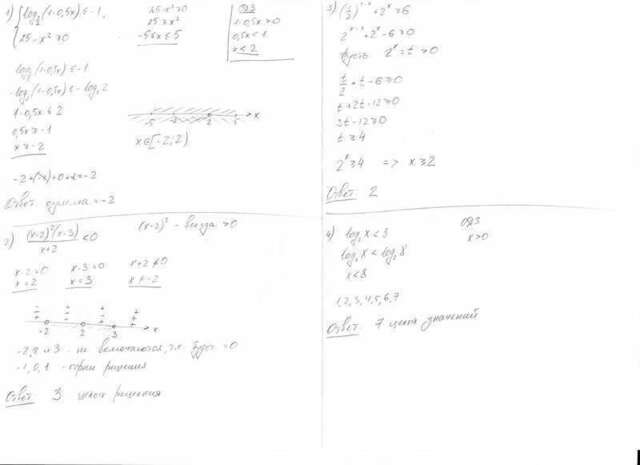 1) { log (1-0,5x) ≤ -1,
25-x² ≥ 0
25-x² ≥ 0
25 ≥ x²
-5 ≤ x ≤ 5
ОДЗ
1-0,5x > 0
0,5x < 1
x < 2
log (1-0,5x) ≤ -1
1-0,5x ≤ 2
0,5x ≥ -1
x ≥ -2
-5 -2 2 5 x
x ∈ [-2; 2)
-2+(-1)+0+1=-2
Ответ: сумма = -2
2) (x-2)²(x-3) / x+2 < 0
(x-2)² - всегда ≥ 0
x-2=0 x-3=0 x+2≠0
x=2 x=3 x≠-2
-2 2 3 x
-2, 2 и 3 - не включаются, т.к. будет = 0
-1, 0, 1 - решения
Ответ: 3 целых решения
3) (1/2)^(1-x) + 2^x ≥ 6
2^(x-1) + 2^x - 6 ≥ 0
Пусть 2^x = t > 0
t/2 + t - 6 ≥ 0
t+2t-12 ≥ 0
3t-12 ≥ 0
t ≥ 4
2^x ≥ 4 => x ≥ 2
Ответ: 2
4) log₂x < 3
ОДЗ
x > 0
log₂x < log₂8
x < 8
1,2,3,4,5,6,7
Ответ: 7 целых значений